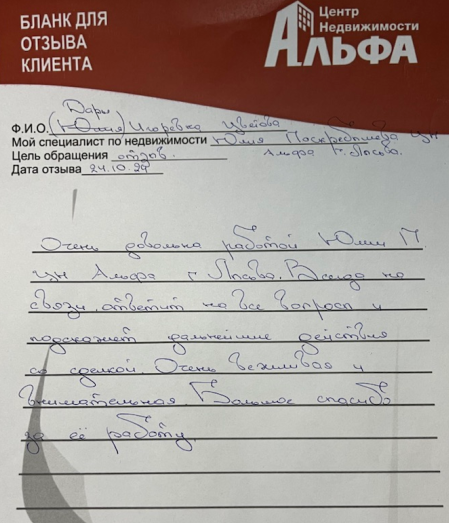 БЛАНК ДЛЯ
ОТЗЫВА
КЛИЕНТА
Центр
Недвижимости
АЛЬФА
Дарья
Ф.И.О. (Юлия) Игоревна Цветова
Мой специалист по недвижимости Юлия Поскребышева ЦН
Цель обращения отзыв. Альфа г. Лысьва.
Дата отзыва 24.10.24
Очень довольна работой Юлии П.
ЦН Альфа г Лысьва. Всегда на
связи, ответит на все вопросы и
подскажет дальнейшие действия
со сделкой. Очень вежливая и
внимательная Большое спасибо
за её работу.